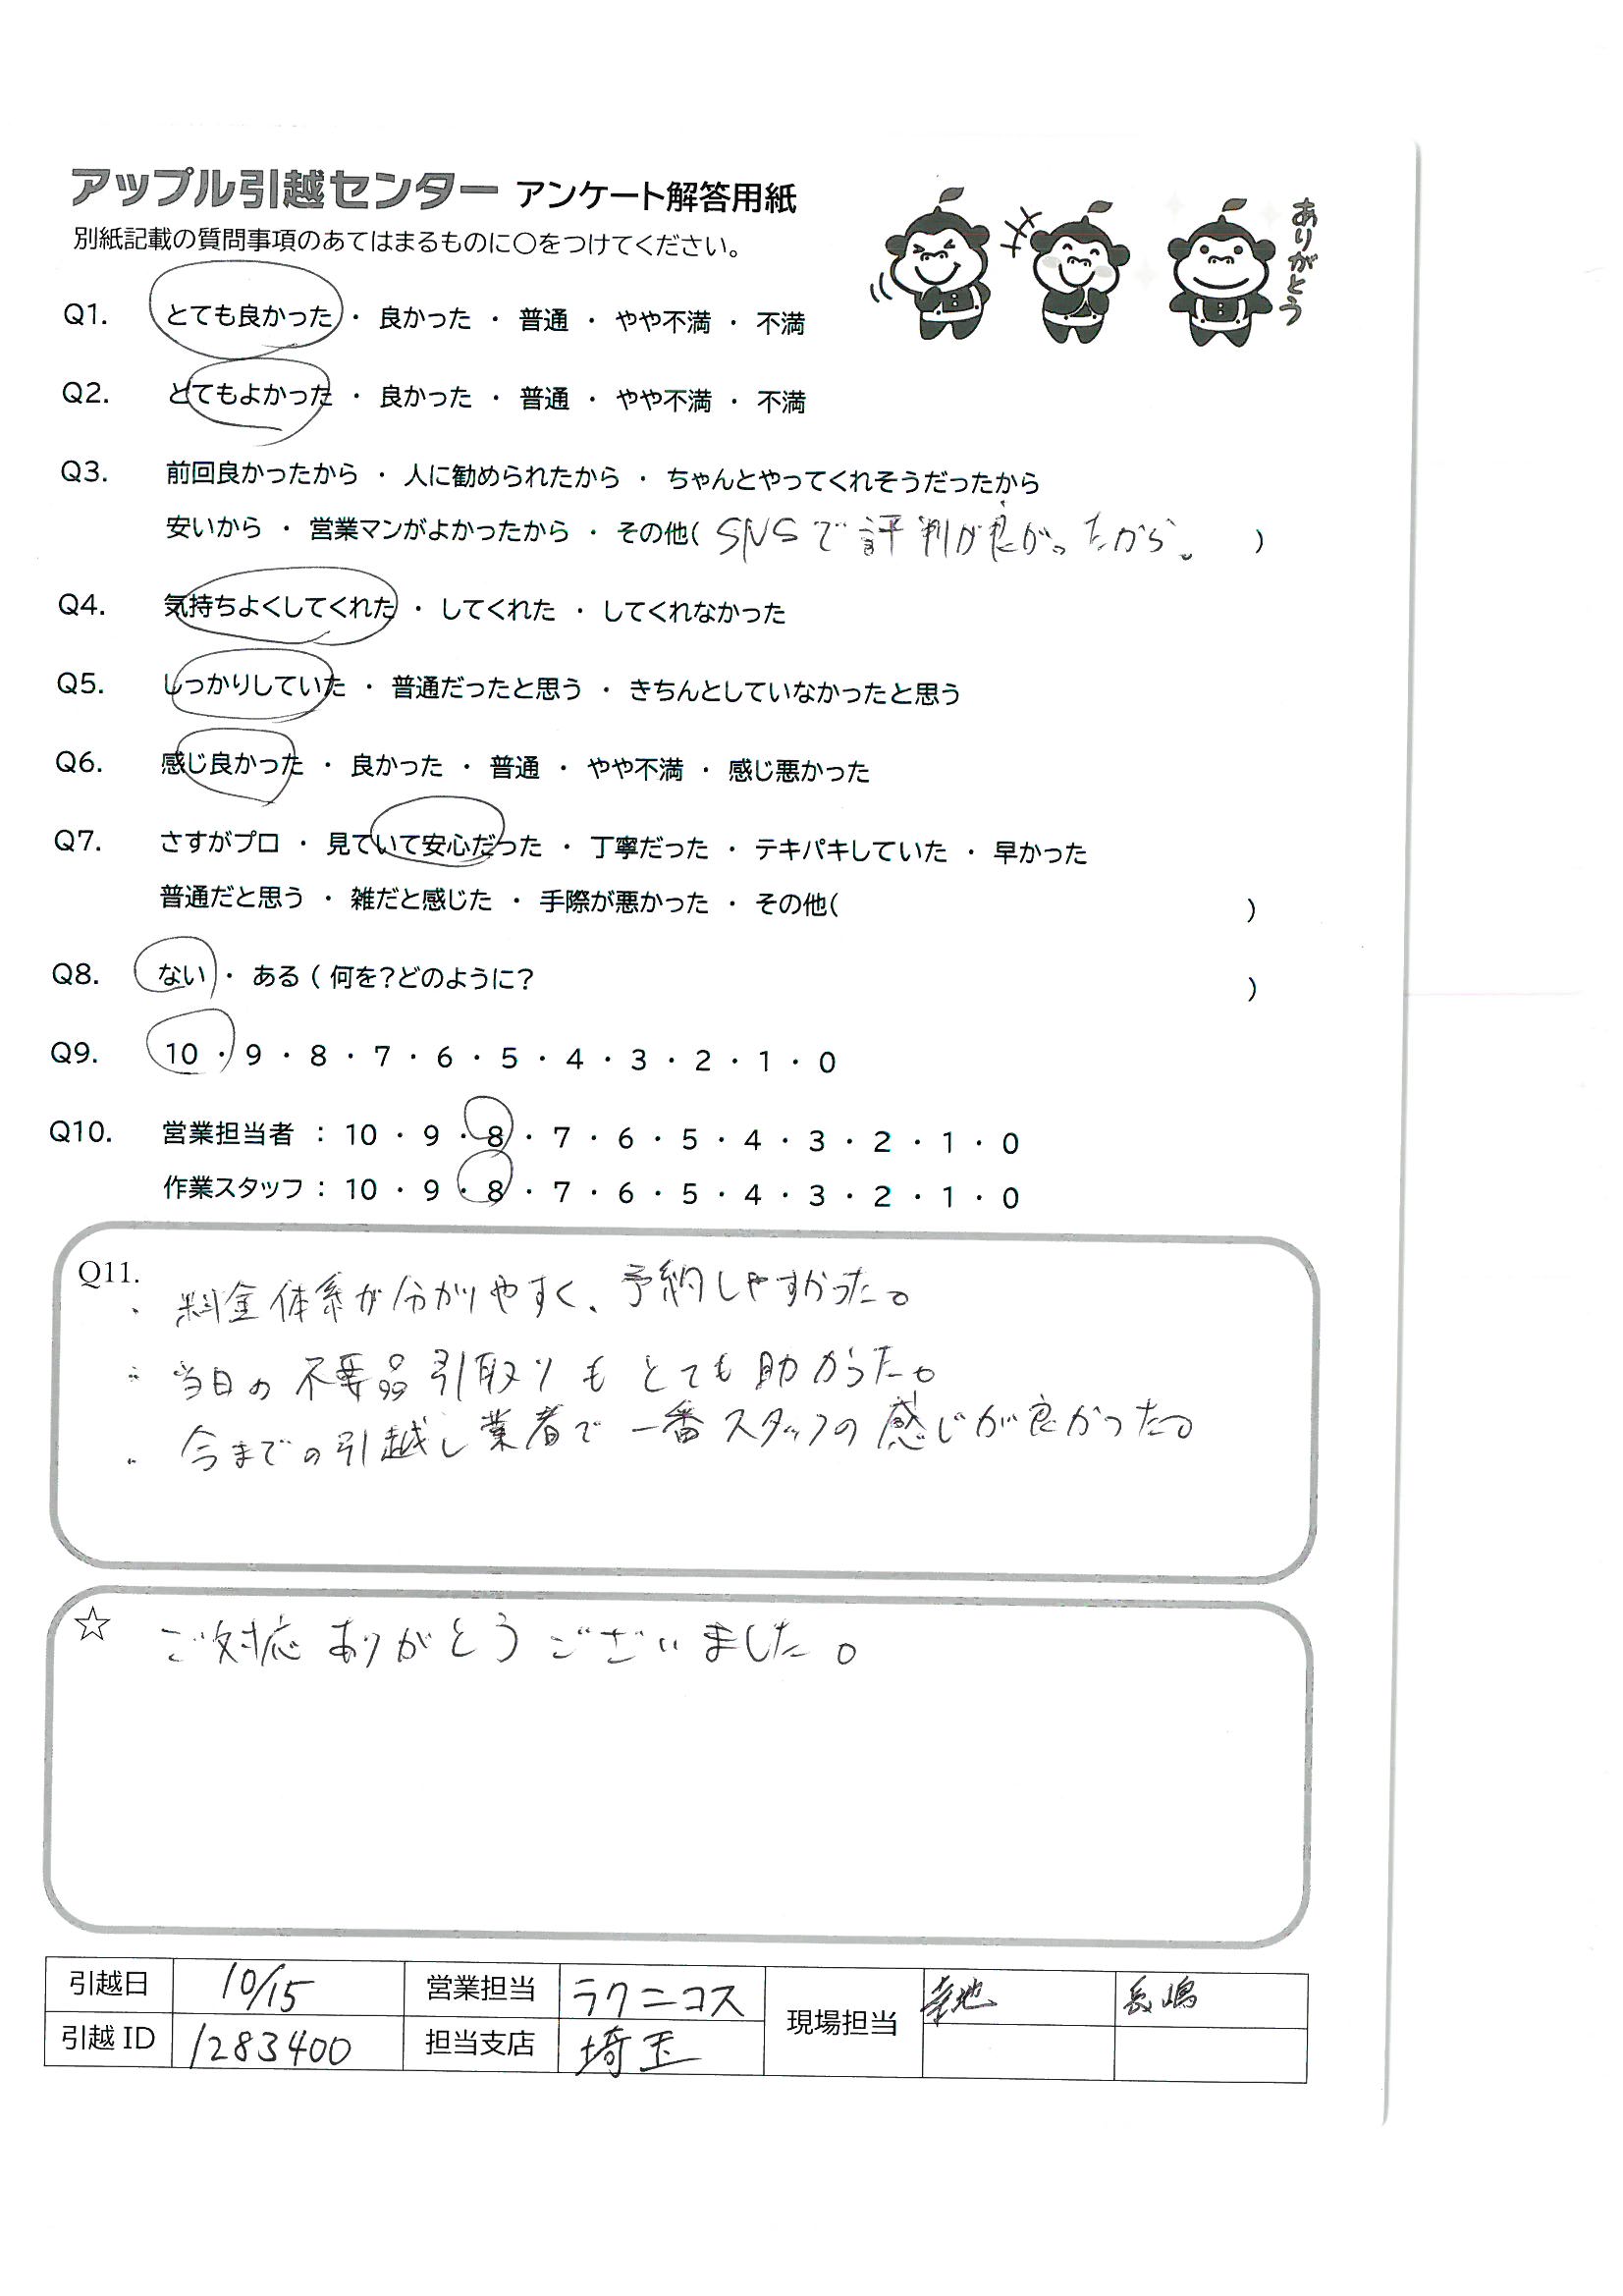 アップル引越センター アンケート解答用紙
別紙記載の質問事項のあてはまるものに○をつけてください。
ありがとう
Q1. とても良かった ・ 良かった ・ 普通 ・ やや不満 ・ 不満
Q2. とてもよかった ・ 良かった ・ 普通 ・ やや不満 ・ 不満
Q3. 前回良かったから ・ 人に勧められたから ・ ちゃんとやってくれそうだったから
安いから ・ 営業マンがよかったから ・ その他( SNSで評判が良かったから。 )
Q4. 気持ちよくしてくれた ・ してくれた ・ してくれなかった
Q5. しっかりしていた ・ 普通だったと思う ・ きちんとしていなかったと思う
Q6. 感じ良かった ・ 良かった ・ 普通 ・ やや不満 ・ 感じ悪かった
Q7. さすがプロ ・ 見ていて安心だった ・ 丁寧だった ・ テキパキしていた ・ 早かった
普通だと思う ・ 雑だと感じた ・ 手際が悪かった ・ その他( )
Q8. ない ・ ある ( 何を?どのように? )
Q9. 10 ・ 9 ・ 8 ・ 7 ・ 6 ・ 5 ・ 4 ・ 3 ・ 2 ・ 1 ・ 0
Q10. 営業担当者 : 10 ・ 9 ・ 8 ・ 7 ・ 6 ・ 5 ・ 4 ・ 3 ・ 2 ・ 1 ・ 0
作業スタッフ : 10 ・ 9 ・ 8 ・ 7 ・ 6 ・ 5 ・ 4 ・ 3 ・ 2 ・ 1 ・ 0
Q11.
・ 料金体系が分かりやすく、予約しやすかった。
・ 当日の不要品引取りもとても助かった。
・ 今までの引越し業者で一番スタッフの感じが良かった。
☆ ご対応ありがとうございました。
引越日 10/15 営業担当 ラクニコス 現場担当 幸地 長嶋
引越ID 1283400 担当支店 埼玉